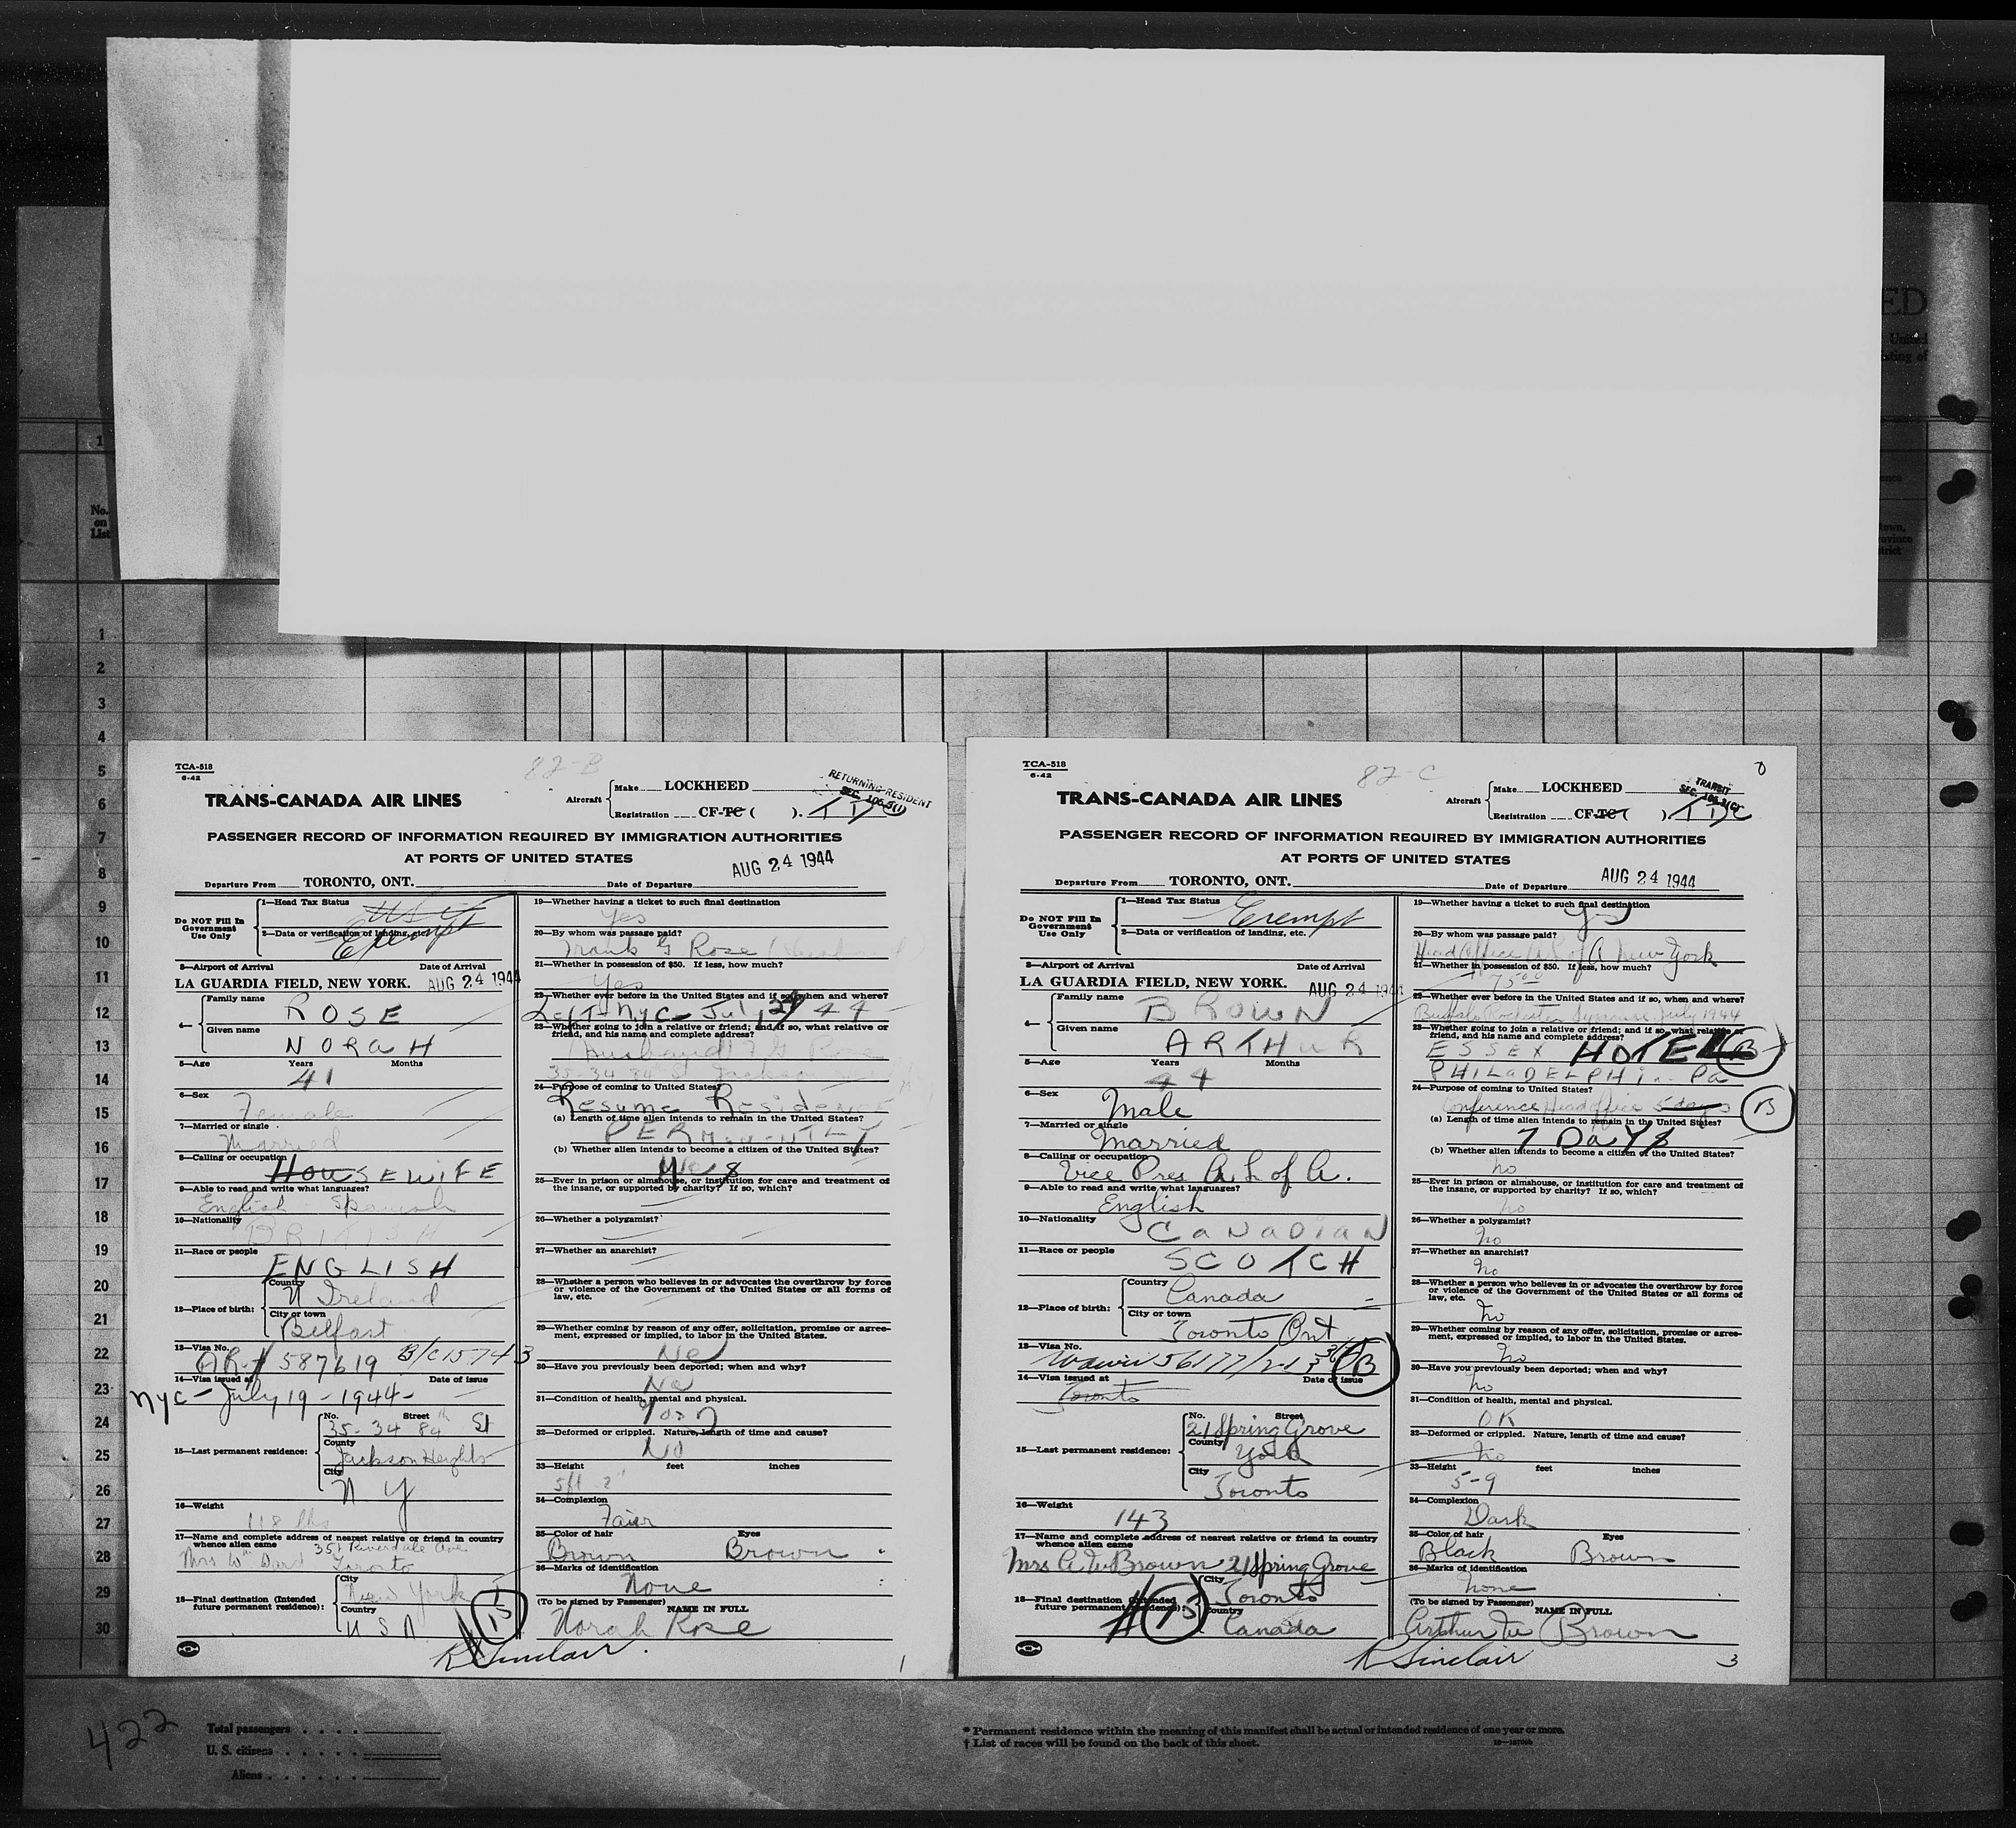 ED
United
sting of
1
No.
on
List
ence
town,
province
strict
1
2
3
4
5
6
7
8
9
10
11
12
13
14
15
16
17
18
19
20
21
22
23
24
25
26
27
28
29
30
82-B
TCA-518
6-42
TRANS-CANADA AIR LINES
Aircraft
Make LOCKHEED
Registration CF-TC ( ).
RETURNING RESIDENT
SEC.
PASSENGER RECORD OF INFORMATION REQUIRED BY IMMIGRATION AUTHORITIES
AT PORTS OF UNITED STATES
AUG 24 1944
Departure From TORONTO, ONT. Date of Departure
Do NOT Fill In
Government
Use Only
1—Head Tax Status
2—Data or verification of landing, etc.
Exempt
3—Airport of Arrival Date of Arrival
LA GUARDIA FIELD, NEW YORK. AUG 24 1944
4—
Family name
ROSE
Given name
NORAH
5—Age Years Months
41
6—Sex
Female
7—Married or single
Married
8—Calling or occupation
HOUSEWIFE
9—Able to read and write what languages?
English Spanish
10—Nationality
BRITISH
11—Race or people
ENGLISH
12—Place of birth:
Country
N Ireland
City or town
Belfast
13—Visa No.
AR-# 587619 B/C 15743
14—Visa issued at Date of issue
NYC - July 19 - 1944 -
15—Last permanent residence:
No. Street
35-34 84th St
County
Jackson Heights
City
N Y
16—Weight
118 lbs
17—Name and complete address of nearest relative or friend in country
whence alien came 351 Riverdale Ave
Mrs Wm Ward Toronto
18—Final destination (Intended
future permanent residence):
City
New York
Country
U S A
19—Whether having a ticket to such final destination
Yes
20—By whom was passage paid?
Frank G Rose (Husband)
21—Whether in possession of $50. If less, how much?
Yes
22—Whether ever before in the United States and if so, when and where?
Left NYC - July 44
23—Whether going to join a relative or friend; and if so, what relative or
friend, and his name and complete address?
Husband F G Rose
35-34 84th St Jackson
24—Purpose of coming to United States?
Resume Residence
(a) Length of time alien intends to remain in the United States?
PERMANENTLY
(b) Whether alien intends to become a citizen of the United States?
Yes
25—Ever in prison or almshouse, or institution for care and treatment of
the insane, or supported by charity? If so, which?
26—Whether a polygamist?
27—Whether an anarchist?
28—Whether a person who believes in or advocates the overthrow by force
or violence of the Government of the United States or all forms of
law, etc.
29—Whether coming by reason of any offer, solicitation, promise or agree-
ment, expressed or implied, to labor in the United States.
No
30—Have you previously been deported; when and why?
No
31—Condition of health, mental and physical.
Good
32—Deformed or crippled. Nature, length of time and cause?
No
33—Height feet inches
5ft 2"
34—Complexion
Fair
35—Color of hair Eyes
Brown Brown
36—Marks of identification
None
(To be signed by Passenger) NAME IN FULL
Norah Rose
R Sinclair
1
82-C
TCA-518
6-42
TRANS-CANADA AIR LINES
Aircraft
Make LOCKHEED
Registration CF-TC ( )
TRANSIT
SEC.
PASSENGER RECORD OF INFORMATION REQUIRED BY IMMIGRATION AUTHORITIES
AT PORTS OF UNITED STATES
AUG 24 1944
Departure From TORONTO, ONT. Date of Departure
Do NOT Fill In
Government
Use Only
1—Head Tax Status
Exempt
2—Data or verification of landing, etc.
3—Airport of Arrival Date of Arrival
LA GUARDIA FIELD, NEW YORK. AUG 24 1944
4—
Family name
BROWN
Given name
ARTHUR
5—Age Years Months
44
6—Sex
Male
7—Married or single
Married
8—Calling or occupation
Vice Pres A. L of A.
9—Able to read and write what languages?
English
10—Nationality
CANADIAN
11—Race or people
SCOTCH
12—Place of birth:
Country
Canada
City or town
Toronto Ont
13—Visa No.
Waiver 56177/
B
14—Visa issued at Date of issue
Toronto
15—Last permanent residence:
No. Street
21 Spring Grove
County
York
City
Toronto
16—Weight
143
17—Name and complete address of nearest relative or friend in country
whence alien came
Mrs A. W Brown 21 Spring Grove
18—Final destination (Intended
future permanent residence):
City
Toronto
Country
Canada
19—Whether having a ticket to such final destination
Yes
20—By whom was passage paid?
Head Office A L of A New York
21—Whether in possession of $50. If less, how much?
75.00
22—Whether ever before in the United States and if so, when and where?
Buffalo Rochester Syracuse July 1944
23—Whether going to join a relative or friend; and if so, what relative or
friend, and his name and complete address?
ESSEX HOTEL B
PHILADELPHIA Pa
24—Purpose of coming to United States?
Conference Head office 5 days B
(a) Length of time alien intends to remain in the United States?
7 DAYS
(b) Whether alien intends to become a citizen of the United States?
no
25—Ever in prison or almshouse, or institution for care and treatment of
the insane, or supported by charity? If so, which?
no
26—Whether a polygamist?
no
27—Whether an anarchist?
no
28—Whether a person who believes in or advocates the overthrow by force
or violence of the Government of the United States or all forms of
law, etc.
no
29—Whether coming by reason of any offer, solicitation, promise or agree-
ment, expressed or implied, to labor in the United States.
no
30—Have you previously been deported; when and why?
no
31—Condition of health, mental and physical.
OK
32—Deformed or crippled. Nature, length of time and cause?
no
33—Height feet inches
5-9
34—Complexion
Dark
35—Color of hair Eyes
Black Brown
36—Marks of identification
none
(To be signed by Passenger) NAME IN FULL
Arthur W Brown
R Sinclair
3
422
Total passengers
U. S. citizens
Aliens
* Permanent residence within the meaning of this manifest shall be actual or intended residence of one year or more.
† List of races will be found on the back of this sheet.